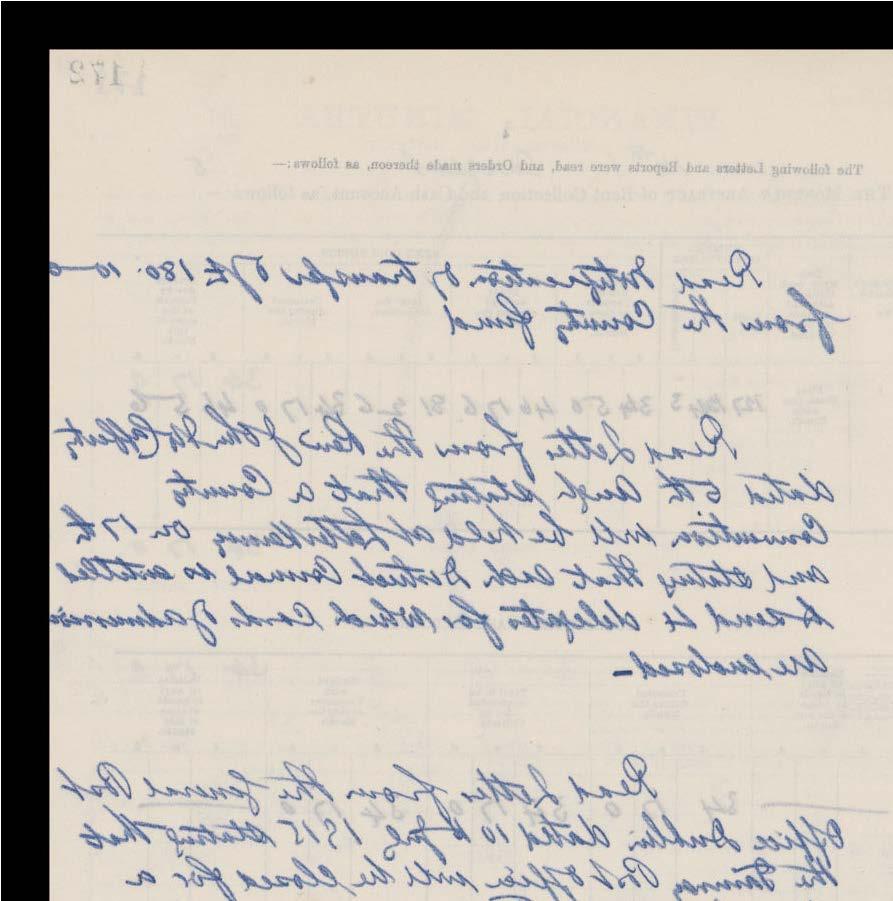 172
4
The following Letters and Reports were read, and Orders made thereon, as follows:—
Read Notification of transfer of £180.10-0
from the County fund
Read Letter from the Rev John McCafferty
dated 5th Augt stating that a County
Convention will be held at Letterkenny on 17th
and stating that each District Council is entitled
to send 4 delegates for which Cards of admission
are enclosed –
Read Letter from the General Post
Office Dublin dated 10th July 1915 stating that
the Post Office will be closed for a